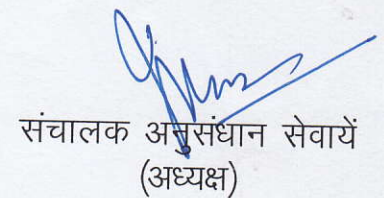 संचालक अनुसंधान सेवायें
(अध्यक्ष)